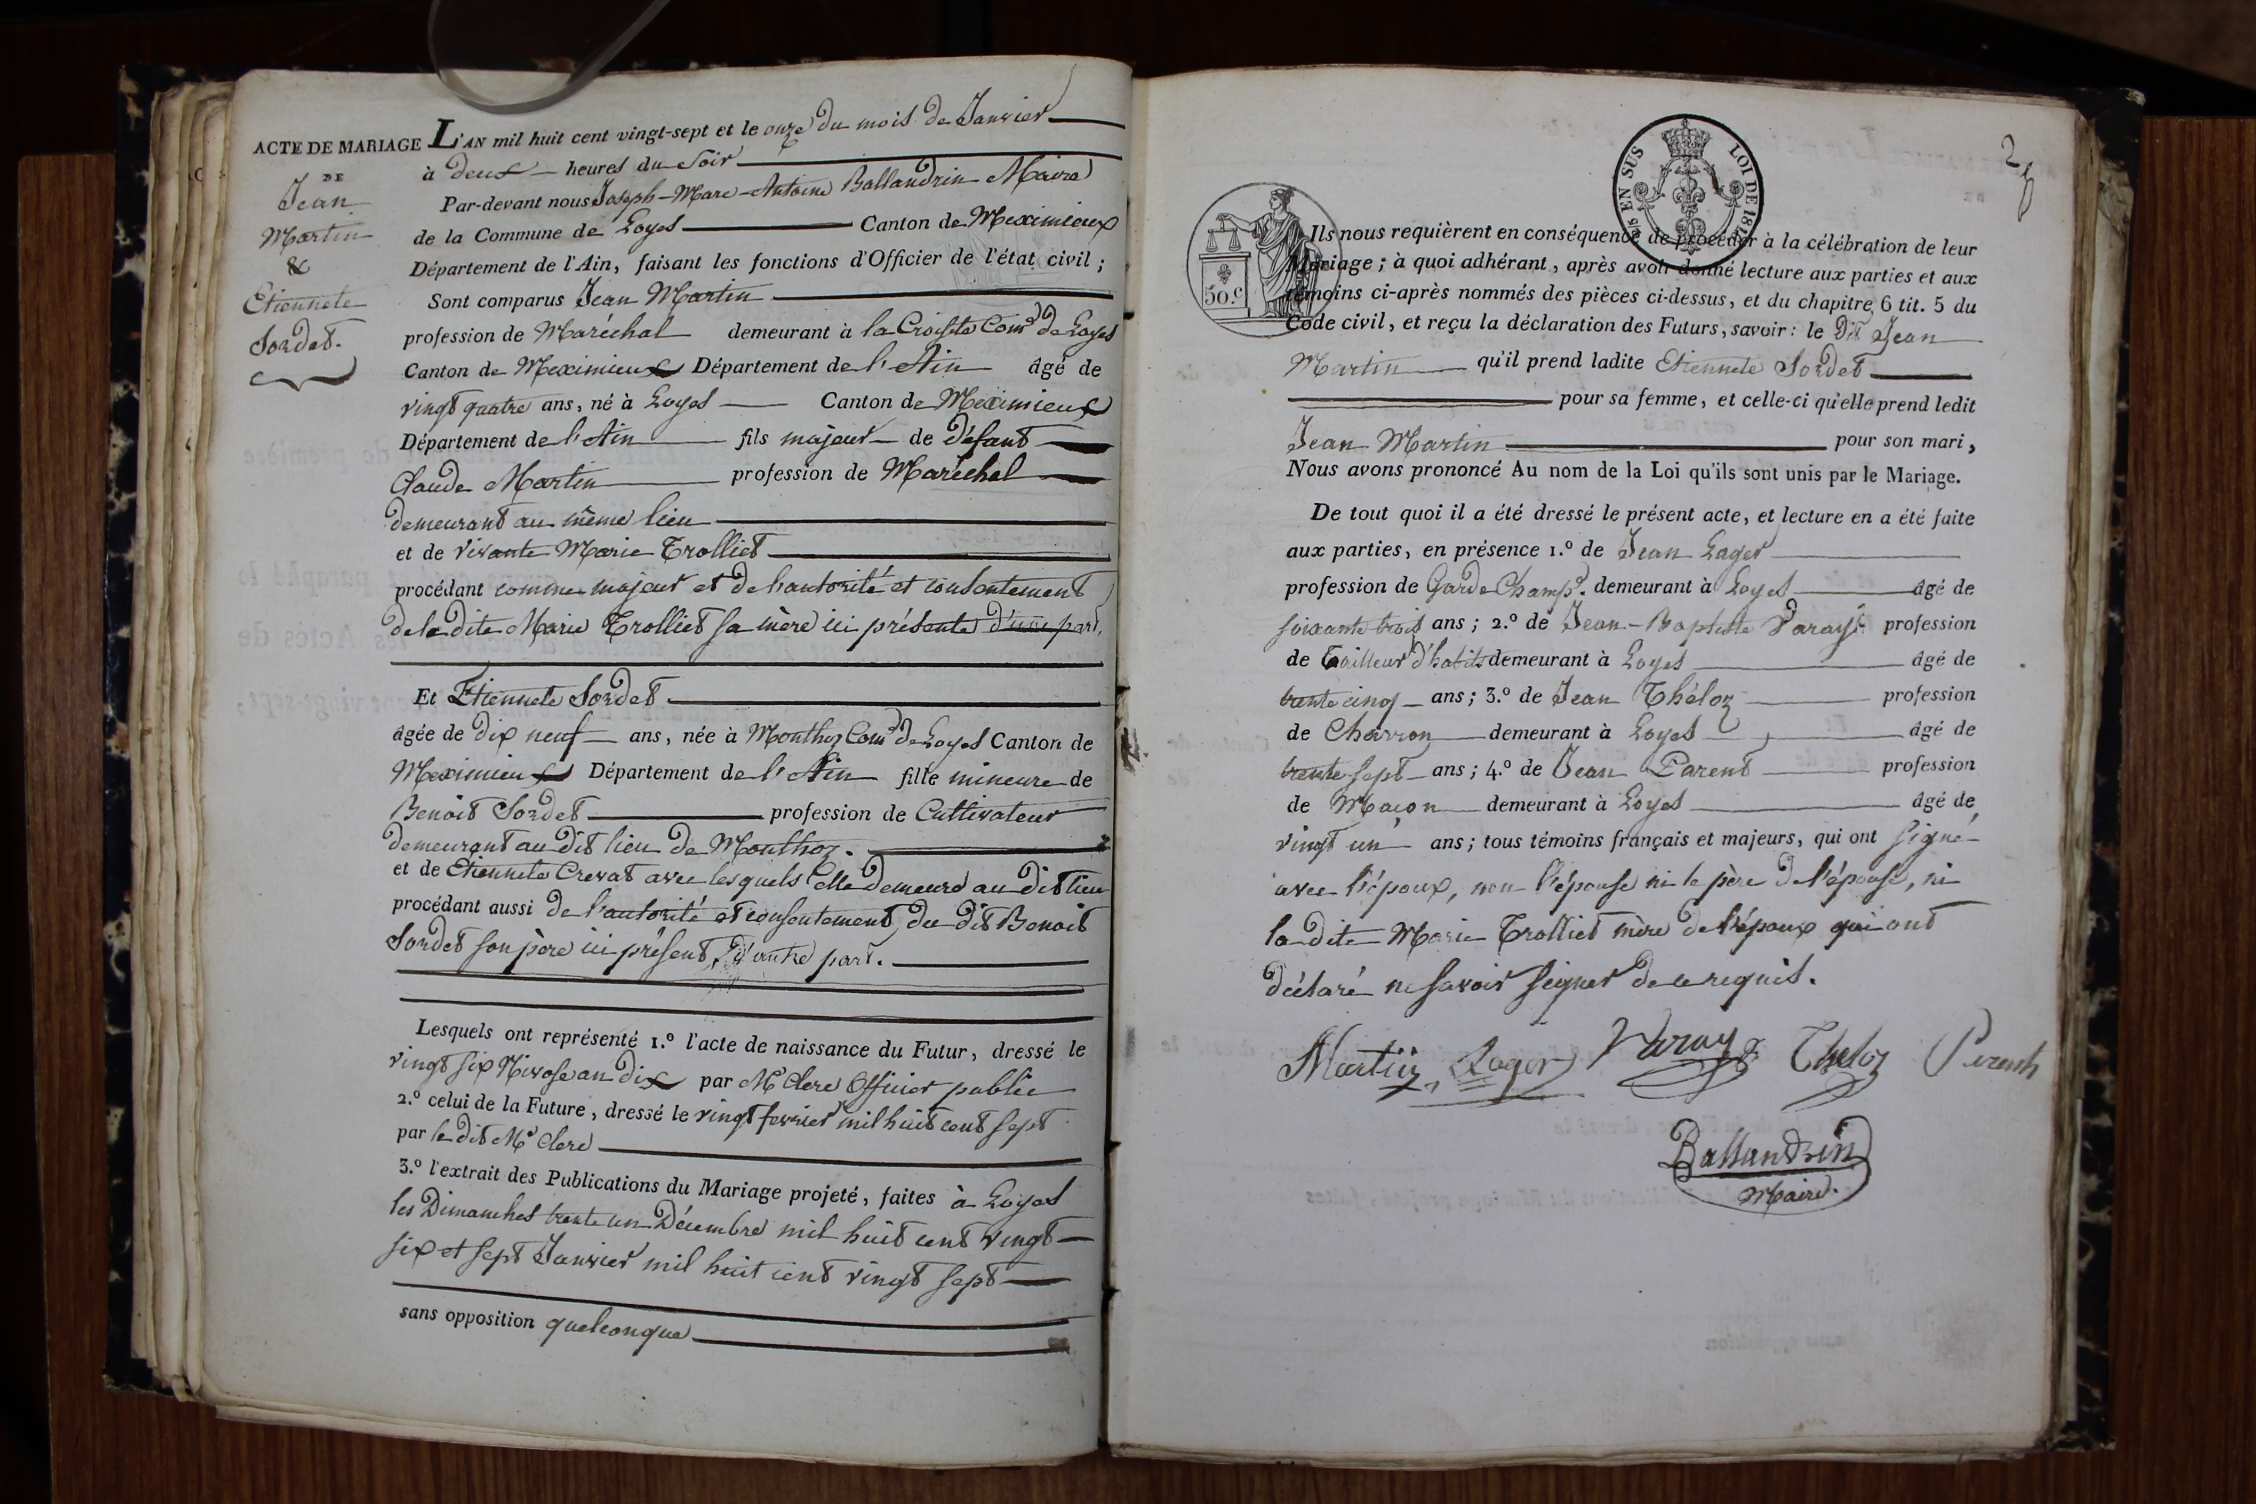 ACTE DE MARIAGE
DE
Jean
Martin
&
Etiennete
Sordet.
L'AN mil huit cent vingt-sept et le onze du mois de Janvier
à deux heures du Soir
Par-devant nous Joseph-Marc-Antoine Ballandrin Maire
de la Commune de Loyes Canton de Meximieux
Département de l'Ain, faisant les fonctions d'Officier de l'état civil ;
Sont comparus Jean Martin
profession de Maréchal demeurant à la Croisete Comne de Loyes
Canton de Meximieux Département de l'Ain âgé de
vingt quatre ans, né à Loyes Canton de Meximieux
Département de l'Ain fils majeur de défunt
Claude Martin profession de Maréchal
demeurant au même lieu
et de vivante Marie Trolliet
procédant comme majeur et de l'autorité et consentement
de la dite Marie Trolliet sa mère ici présente d'une part,
Et Etiennete Sordet
âgée de dix neuf ans, née à Monthoz Comne de Loyes Canton de
Meximieux Département de l'Ain fille mineure de
Benoit Sordet profession de Cultivateur
demeurant au dit lieu de Monthoz.
et de Etiennete Crevat avec lesquels elle demeure au dit lieu
procédant aussi de l'autorité et consentement du dit Benoit
Sordet son père ici présent, d'autre part.
Lesquels ont représenté 1.º l'acte de naissance du Futur, dressé le
vingt six Nivose an dix par Mr Clerc Officier public
2.º celui de la Future, dressé le vingt fevrier mil huit cent sept
par le dit Mr Clerc
3.º l'extrait des Publications du Mariage projeté, faites à Loyes
les Dimanches trente un Décembre mil huit cent vingt
six et sept Janvier mil huit cent vingt sept
sans opposition quelconque
EN SUS LOI DE
50.c
Ils nous requièrent en conséquence de procéder à la célébration de leur
Mariage ; à quoi adhérant, après avoir donné lecture aux parties et aux
témoins ci-après nommés des pièces ci-dessus, et du chapitre 6 tit. 5 du
Code civil, et reçu la déclaration des Futurs, savoir : le dit Jean
Martin qu'il prend ladite Etiennete Sordet
pour sa femme, et celle-ci qu'elle prend ledit
Jean Martin pour son mari,
Nous avons prononcé Au nom de la Loi qu'ils sont unis par le Mariage.
De tout quoi il a été dressé le présent acte, et lecture en a été faite
aux parties, en présence 1.º de Jean Lager
profession de Garde Champe. demeurant à Loyes âgé de
soixante trois ans ; 2.º de Jean-Baptiste profession
de Tailleur d'habits demeurant à Loyes âgé de
trente cinq ans ; 3.º de Jean Théloz profession
de Charron demeurant à Loyes âgé de
trente sept ans ; 4.º de Jean Parent profession
de Maçon demeurant à Loyes âgé de
vingt un ans ; tous témoins français et majeurs, qui ont signé
avec l'époux, non l'épouse ni le père de l'épouse, ni
la dite Marie Trolliet mère de l'époux qui ont
déclaré ne savoir signer de ce requis.
Martin Lager Theloz
Ballandrin
Maire.